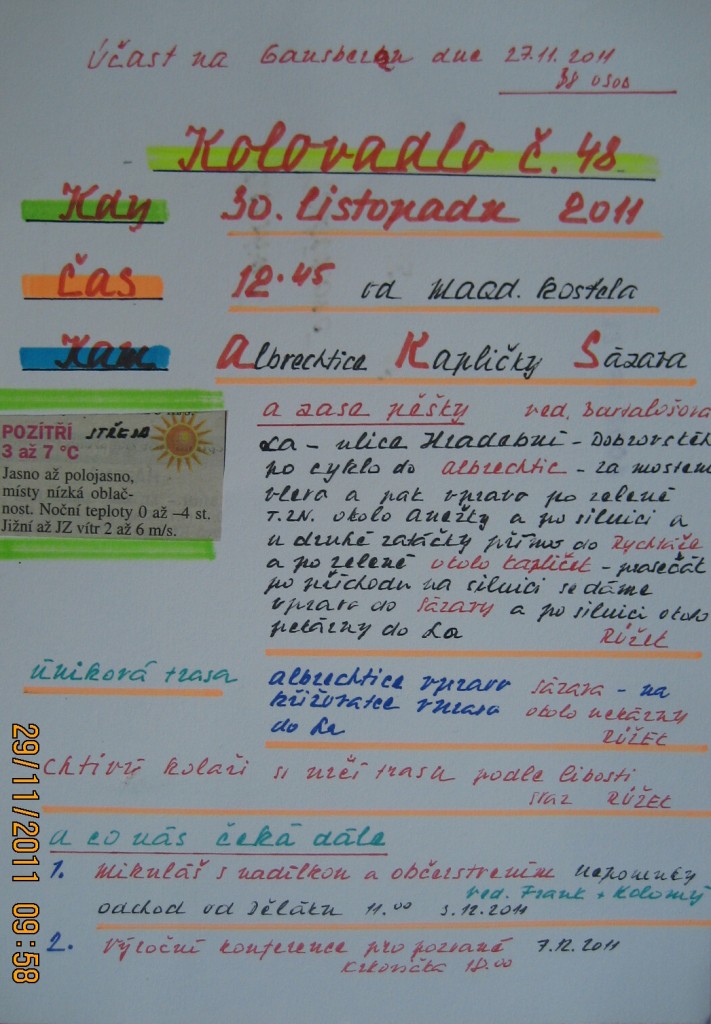 Účast na Gansberen dne 27.11.2011
38 osob
Kolovadlo č. 48
Kdy 30. listopadu 2011
Čas 12.45 od MAGD. kostela
Kam Albrechtice Kapličky Sázava
a zasa pěšky ved. Bartalošová
POZÍTŘÍ STŘEDA
3 až 7 °C
Jasno až polojasno,
místy nízká oblač-
nost. Noční teploty 0 až –4 st.
Jižní až JZ vítr 2 až 6 m/s.
La – ulice Hradební – Dobrovské
po cyklo do albrechtic – za mostem
vleva a pak vpravo po zelené
T.ZN. okolo Anežky a po silnici a
u druhé zatáčky přímo do Rychtáře
a po zelené okolo kapliček –
po příchodu na silnici se dáme
vpravo do Sázavy a po silnici okolo
pekárny do La RŮŽEK
úniková trasa
albrechtice vpravo sázava – na
křižovatce vpravo okolo pekárny
do La RŮŽEK
Chtiví kolaři si určí trasu podle libosti
sraz RŮŽEK
a co nás čeká dále
1. Mikuláš s nadílkou a občerstvením Nepomuky
ved. Frank + Kolomý
odchod od Děláku 11.00 3.12.2011
2. Výroční konference pro pozvané 7.12.2011
Krkovička 18.00
29/11/2011 09:58